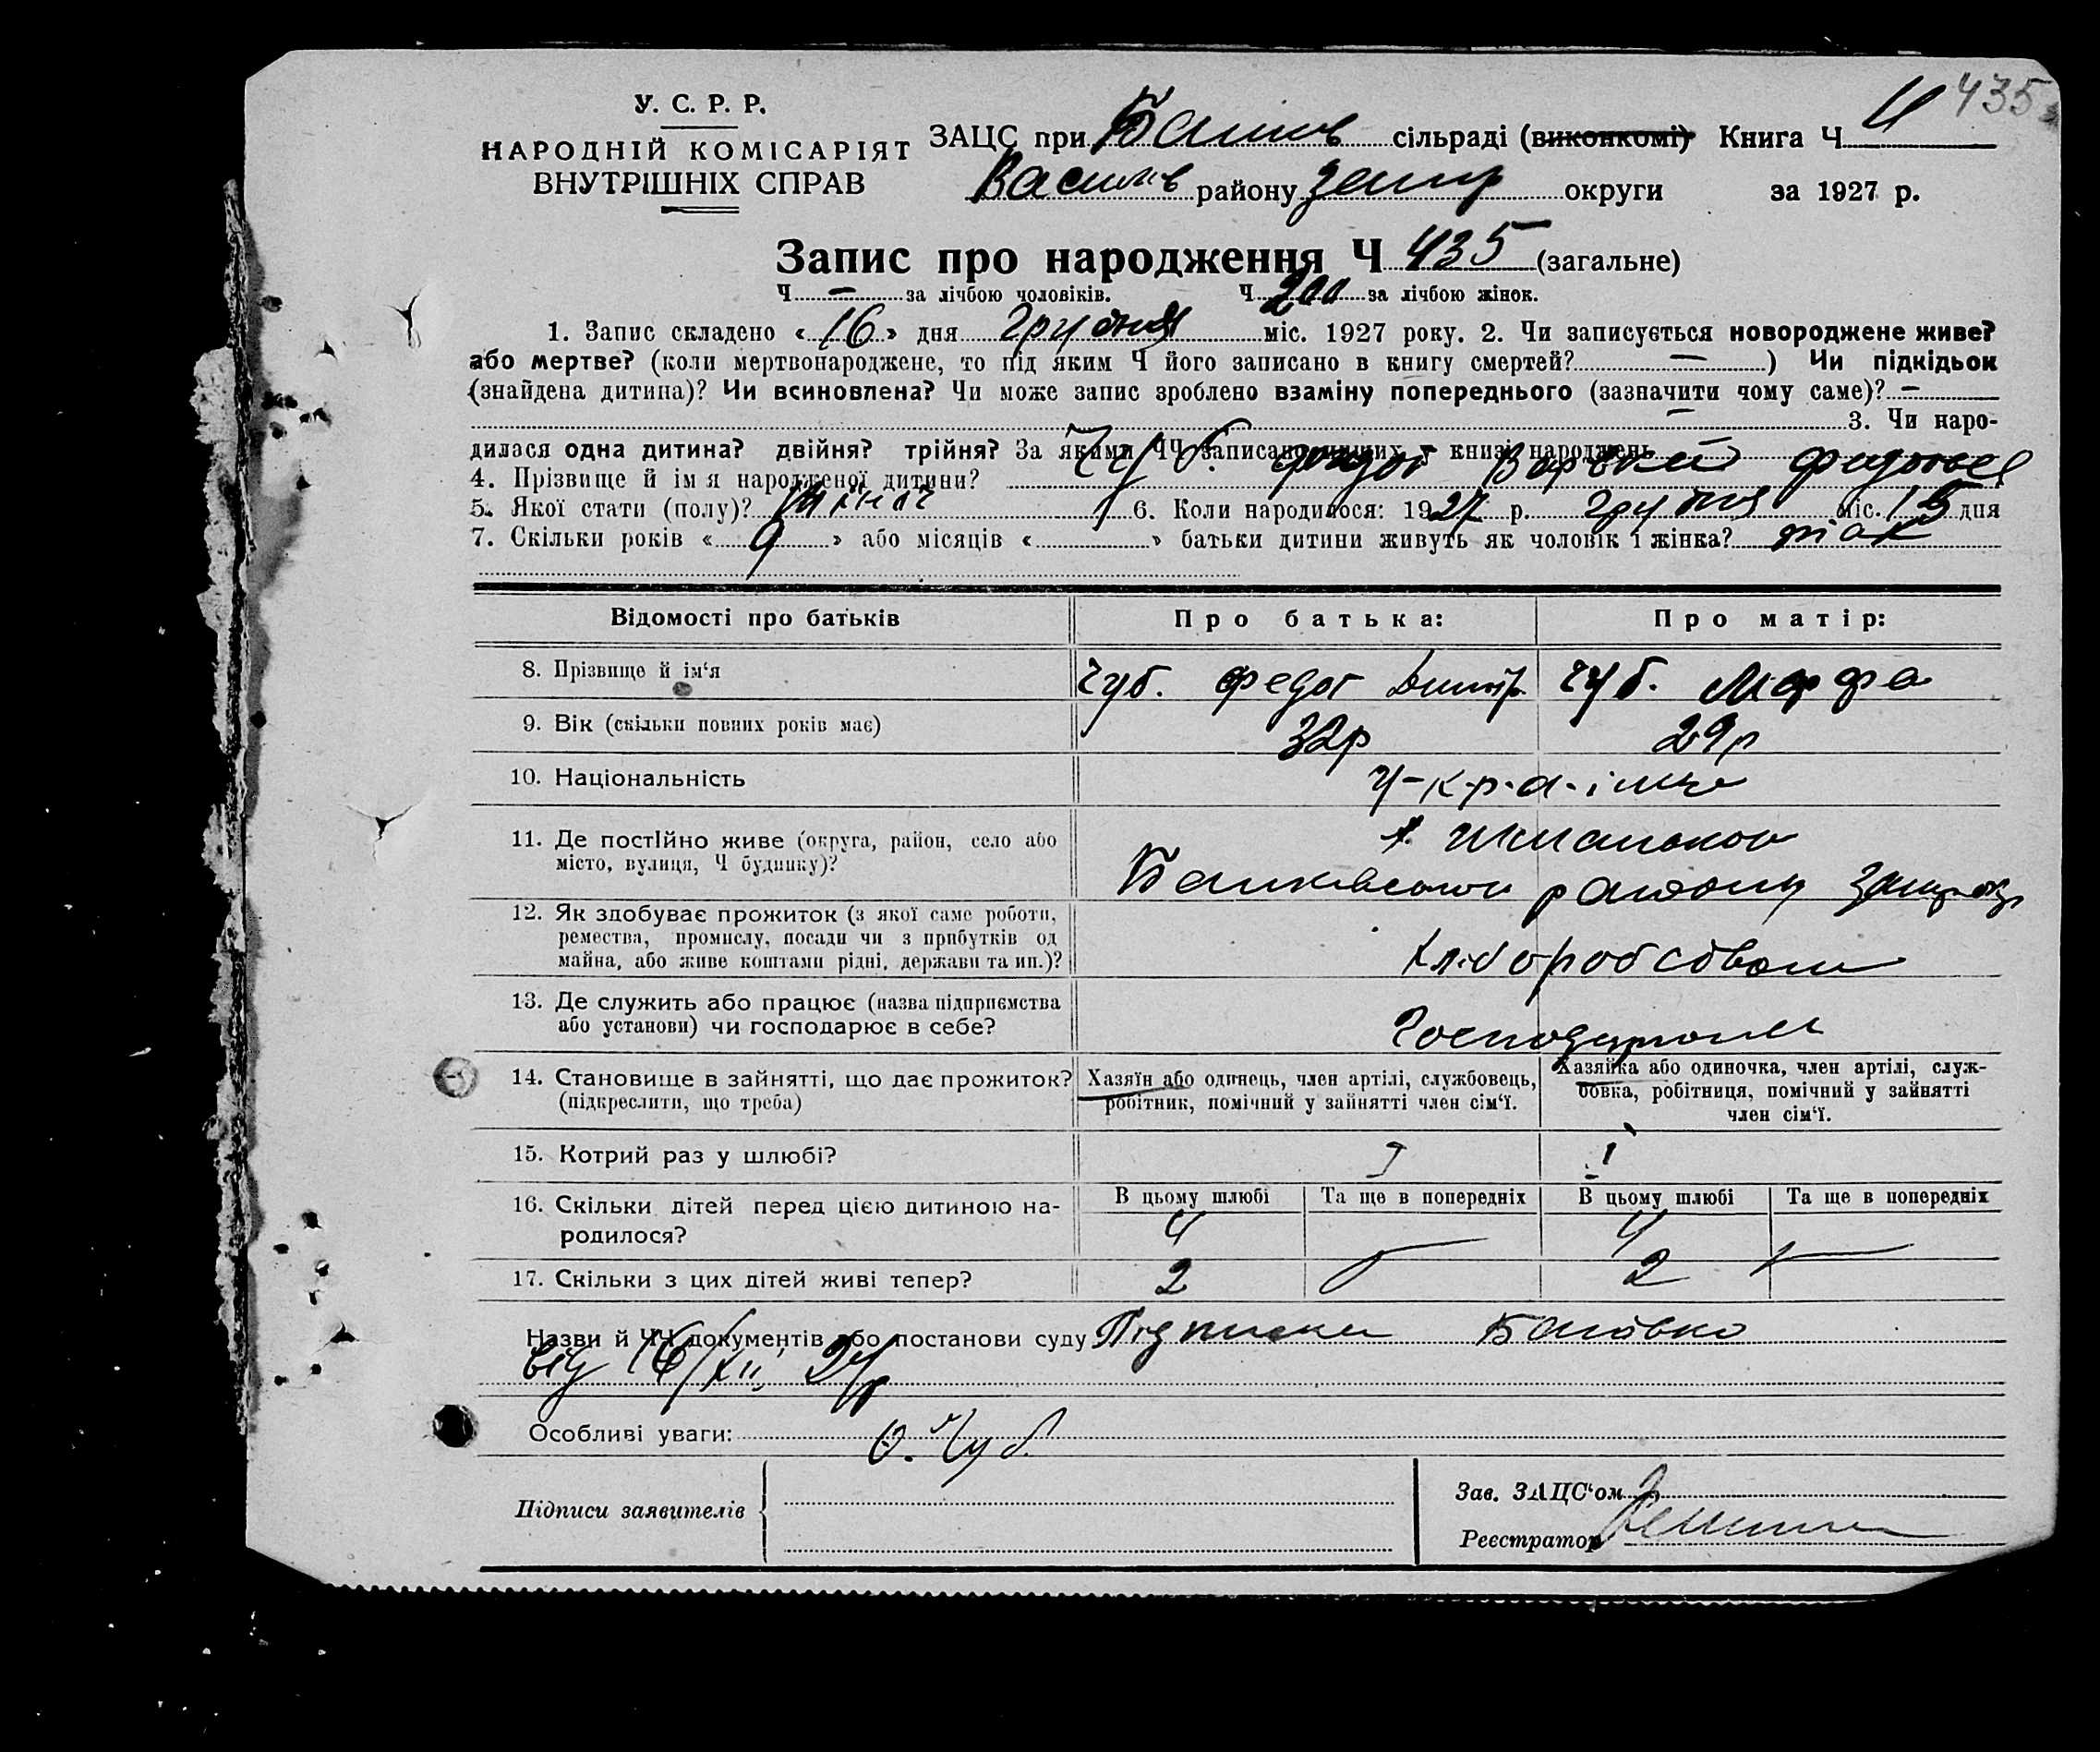 435
У. С. Р. Р.
НАРОДНІЙ КОМІСАРІЯТ
ВНУТРІШНІХ СПРАВ
ЗАЦС при сільраді (виконкомі) Книга Ч 4
Василів району округи за 1927 р.
Запис про народження Ч 435 (загальне)
Ч — за лічбою чоловіків. Ч 200 за лічбою жінок.
1. Запис складено «16» дня грудня міс. 1927 року. 2. Чи записується новороджене живе?
або мертве? (коли мертвонароджене, то під яким Ч його записано в книгу смертей? — ) Чи підкідьок
(знайдена дитина)? Чи всиновлена? Чи може запис зроблено взаміну попереднього (зазначити чому саме)? —
— 3. Чи наро-
дилася одна дитина? двійня? трійня? За якими ЧЧ записано инших у книзі народжень —
4. Прізвище й ім я народженої дитини? Чуб.
5. Якої стати (полу)? жіноч 6. Коли народилося: 1927 р. грудня міс. 15 дня
7. Скільки років «9» або місяців « » батьки дитини живуть як чоловік і жінка? так
Відомості про батьків Про батька: Про матір:
8. Прізвище й ім‘я Чуб. Федот Чуб. Марфа
9. Вік (скільки повних років має) 32р 29р
10. Національність
11. Де постійно живе (округа, район, село або
місто, вулиця, Ч будинку)?
району
12. Як здобуває прожиток (з якої саме роботи,
ремества, промислу, посади чи з прибутків од
майна, або живе коштами рідні, держави та ин.)?
хліборобством
13. Де служить або працює (назва підприємства
або установи) чи господарює в себе?
14. Становище в зайнятті, що дає прожиток?
(підкреслити, що треба)
Хазяїн або одинець, член артілі, службовець,
робітник, помічний у зайнятті член сім‘ї.
Хазяйка або одиночка, член артілі, служ-
бовка, робітниця, помічний у зайнятті
член сім‘ї.
15. Котрий раз у шлюбі? I I
16. Скільки дітей перед цією дитиною на-
родилося?
В цьому шлюбі Та ще в попередніх В цьому шлюбі Та ще в попередніх
4 4
17. Скільки з цих дітей живі тепер? 2 — 2 —
Назви й ЧЧ документів або постанови суду
від 16/XII
Особливі уваги: Чуб
Підписи заявителів
Зав. ЗАЦС‘ом
Реєстратор